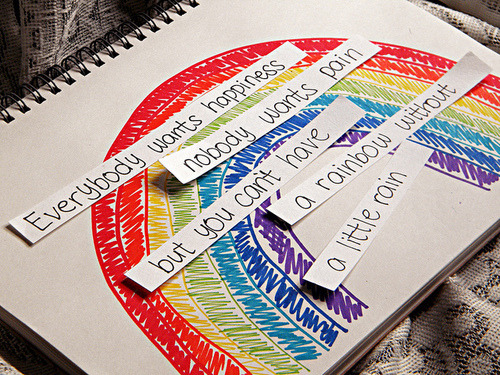 Everybody wants happiness
nobody wants pain
but you can't have
a rainbow without
a little rain